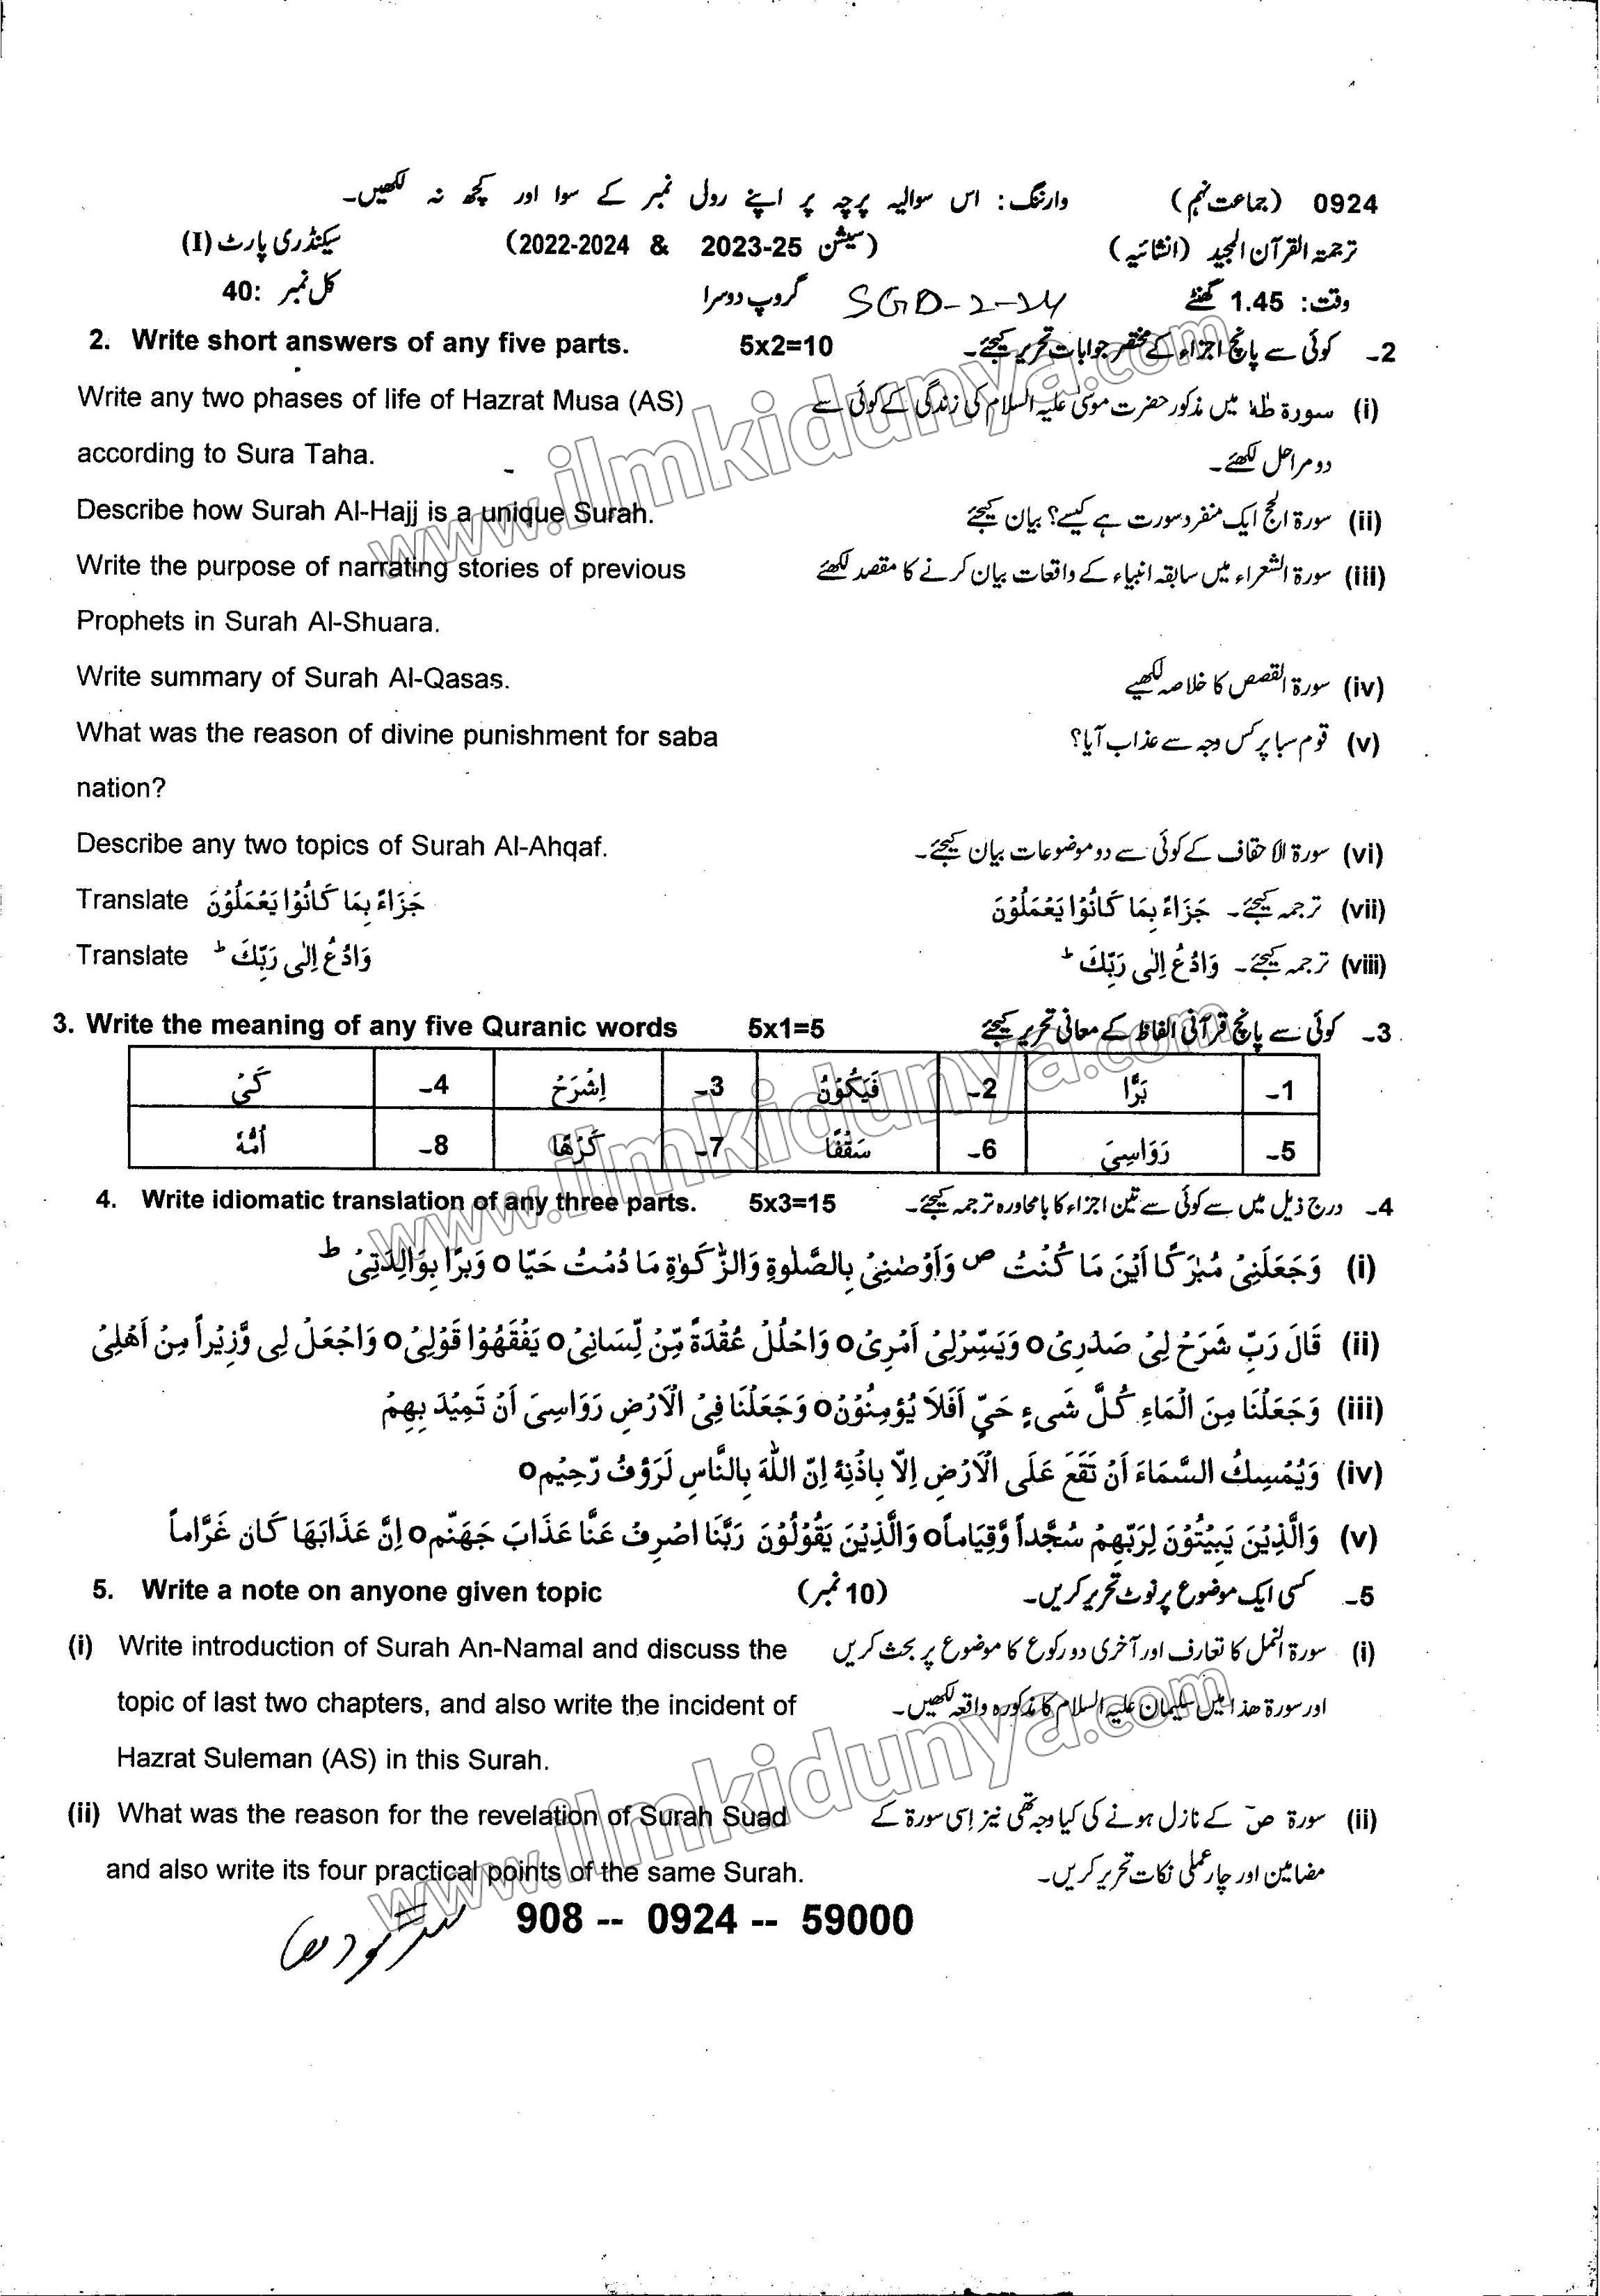 0924 (جماعت نہم) وارننگ: اس سوالیہ پرچہ پر اپنے رول نمبر کے سوا اور کچھ نہ لکھیں۔
ترجمۃ القرآن المجید (انشائیہ) (سیشن 2023-25 & 2022-2024) سیکنڈری پارٹ (I)
وقت: 1.45 گھنٹے SGD-2-24 گروپ دوسرا کل نمبر :40
2. Write short answers of any five parts. 5x2=10 2- کوئی سے پانچ اجزاء کے مختصر جوابات تحریر کیجئے۔
Write any two phases of life of Hazrat Musa (AS) (i) سورۃ طٰہٰ میں مذکور حضرت موسیٰ علیہ السلام کی زندگی کے کوئی سے
according to Sura Taha. دو مراحل لکھئے۔
Describe how Surah Al-Hajj is a unique Surah. (ii) سورۃ الحج ایک منفرد سورت ہے کیسے؟ بیان کیجئے
Write the purpose of narrating stories of previous (iii) سورۃ الشعراء میں سابقہ انبیاء کے واقعات بیان کرنے کا مقصد لکھئے
Prophets in Surah Al-Shuara.
Write summary of Surah Al-Qasas. (iv) سورۃ القصص کا خلاصہ لکھیے
What was the reason of divine punishment for saba (v) قوم سبا پر کس وجہ سے عذاب آیا؟
nation?
Describe any two topics of Surah Al-Ahqaf. (vi) سورۃ الاحقاف کے کوئی سے دو موضوعات بیان کیجئے۔
Translate جَزَاءً بِمَا كَانُوْا يَعْمَلُوْنَ (vii) ترجمہ کیجئے۔ جَزَاءً بِمَا كَانُوْا يَعْمَلُوْنَ
Translate وَادْعُ اِلٰى رَبِّكَ ط (viii) ترجمہ کیجئے۔ وَادْعُ اِلٰى رَبِّكَ ط
3. Write the meaning of any five Quranic words 5x1=5 3- کوئی سے پانچ قرآنی الفاظ کے معانی تحریر کیجئے
1- بَرًّا 2- فَيَكُوْنُ 3- اِشْرَحْ 4- كَىْ
5- رَوَاسِىَ 6- سَقْفًا 7- كَرْهًا 8- اُمَّةً
4. Write idiomatic translation of any three parts. 5x3=15 4- درج ذیل میں سے کوئی سے تین اجزاء کا بامحاورہ ترجمہ کیجئے۔
(i) وَجَعَلَنِىْ مُبٰرَكًا اَيْنَ مَا كُنْتُ ص وَاَوْصٰنِىْ بِالصَّلٰوةِ وَالزَّكٰوةِ مَا دُمْتُ حَيًّا o وَبَرًّا بِوَالِدَتِىْ ط
(ii) قَالَ رَبِّ شَرَحْ لِىْ صَدْرِىْ o وَيَسِّرْلِىْ اَمْرِىْ o وَاحْلُلْ عُقْدَةً مِّنْ لِّسَانِىْ o يَفْقَهُوْا قَوْلِىْ o وَاجْعَلْ لِى وَّزِيْراً مِنْ اَهْلِىْ
(iii) وَجَعَلْنَا مِنَ الْمَاءِ كُلَّ شَىءٍ حَيٍّ اَفَلَا يُؤْمِنُوْنَ o وَجَعَلْنَا فِىْ الْاَرْضِ رَوَاسِىَ اَنْ تَمِيْدَ بِهِمْ
(iv) وَيُمْسِكُ السَّمَاءَ اَنْ تَقَعَ عَلَى الْاَرْضِ اِلَّا بِاِذْنِهٖ اِنَّ اللّٰهَ بِالنَّاسِ لَرَؤُفٌ رَّحِيْم o
(v) وَالَّذِيْنَ يَبِيْتُوْنَ لِرَبِّهِمْ سُجَّداً وَّقِيَاماً o وَالَّذِيْنَ يَقُوْلُوْنَ رَبَّنَا اصْرِفْ عَنَّا عَذَابَ جَهَنَّم o اِنَّ عَذَابَهَا كَانَ غَرَّاماً
5. Write a note on anyone given topic (10 نمبر) 5- کسی ایک موضوع پر نوٹ تحریر کریں۔
(i) Write introduction of Surah An-Namal and discuss the (i) سورۃ النمل کا تعارف اور آخری دو رکوع کا موضوع پر بحث کریں
topic of last two chapters, and also write the incident of اور سورۃ ھذا میں سلیمان علیہ السلام کا مذکورہ واقعہ لکھیں۔
Hazrat Suleman (AS) in this Surah.
(ii) What was the reason for the revelation of Surah Suad (ii) سورۃ صٓ کے نازل ہونے کی کیا وجہ تھی نیز اسی سورۃ کے
and also write its four practical points of the same Surah. مضامین اور چار عملی نکات تحریر کریں۔
908 -- 0924 -- 59000
سرگودھا
www.ilmkidunya.com
www.ilmkidunya.com
www.ilmkidunya.com